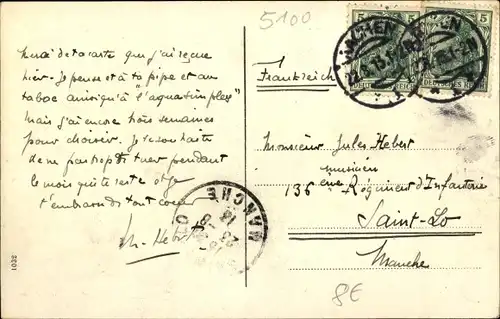 5100
5 5
AACHEN
Merci de ta carte que j'ai reçue
hier. Je pense à ta pipe et au
tabac ainsi qu'à l'"aqua simplex"
mais j'ai encore trois semaines
pour choisir. Je souhaite
de ne pas trop tuer pendant
le mois qui te reste et je
t'embrasse de tout coeur
M. Hebert
Frankreich
Monsieur Jules Hebert
musicien
136eme Régiment d'Infanterie
Saint-Lo
Manche
MANCHE
1032
8€